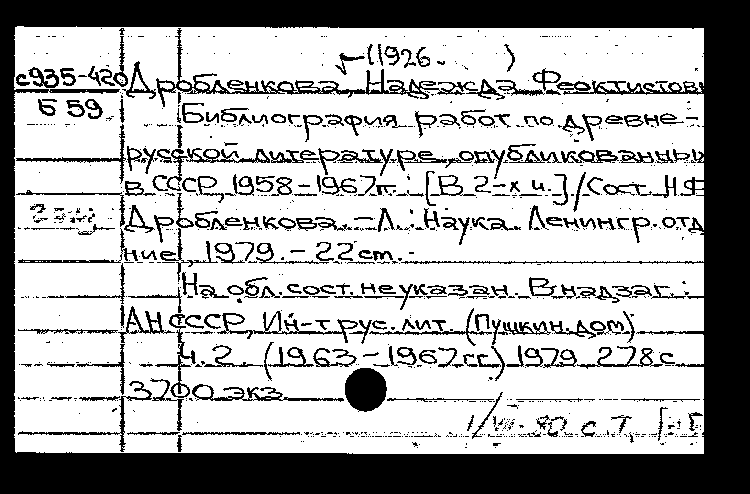 (1926. )
с935-420 Дробленкова, Надежда Феоктистовн
Б 59 Библиография работ по древне-
русской литературе, опубликованных
в СССР, 1958-1967гг.: [В 2-х ч.]/Сост. Н.Ф.
Дробленкова. - Л.: Наука. Ленингр. отд
ние, 1979. - 22 см. -
На обл. сост. не указан. В надзаг.:
АН СССР, Ин-т рус. лит. (Пушкин. дом)
Ч. 2. (1963-1967 гг.) 1979. 278 с.
3700 экз.
1/VII-80 с. Т.